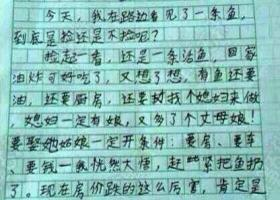 今天,我在路边看见了一条鱼,
到底是捡还是不捡呢?
捡起一看,还是一条活鱼,回家
油炸可好吃了,又想了想,有鱼还要
油,还要厨房,还要找个媳妇来做
,媳妇一定有娘,又多了个丈母娘!
要娶她姑娘一定开条件:要房、要车
、要钱一我恍然大悟,赶紧把鱼扔
了。现在房价跌的这么厉害,肯定是